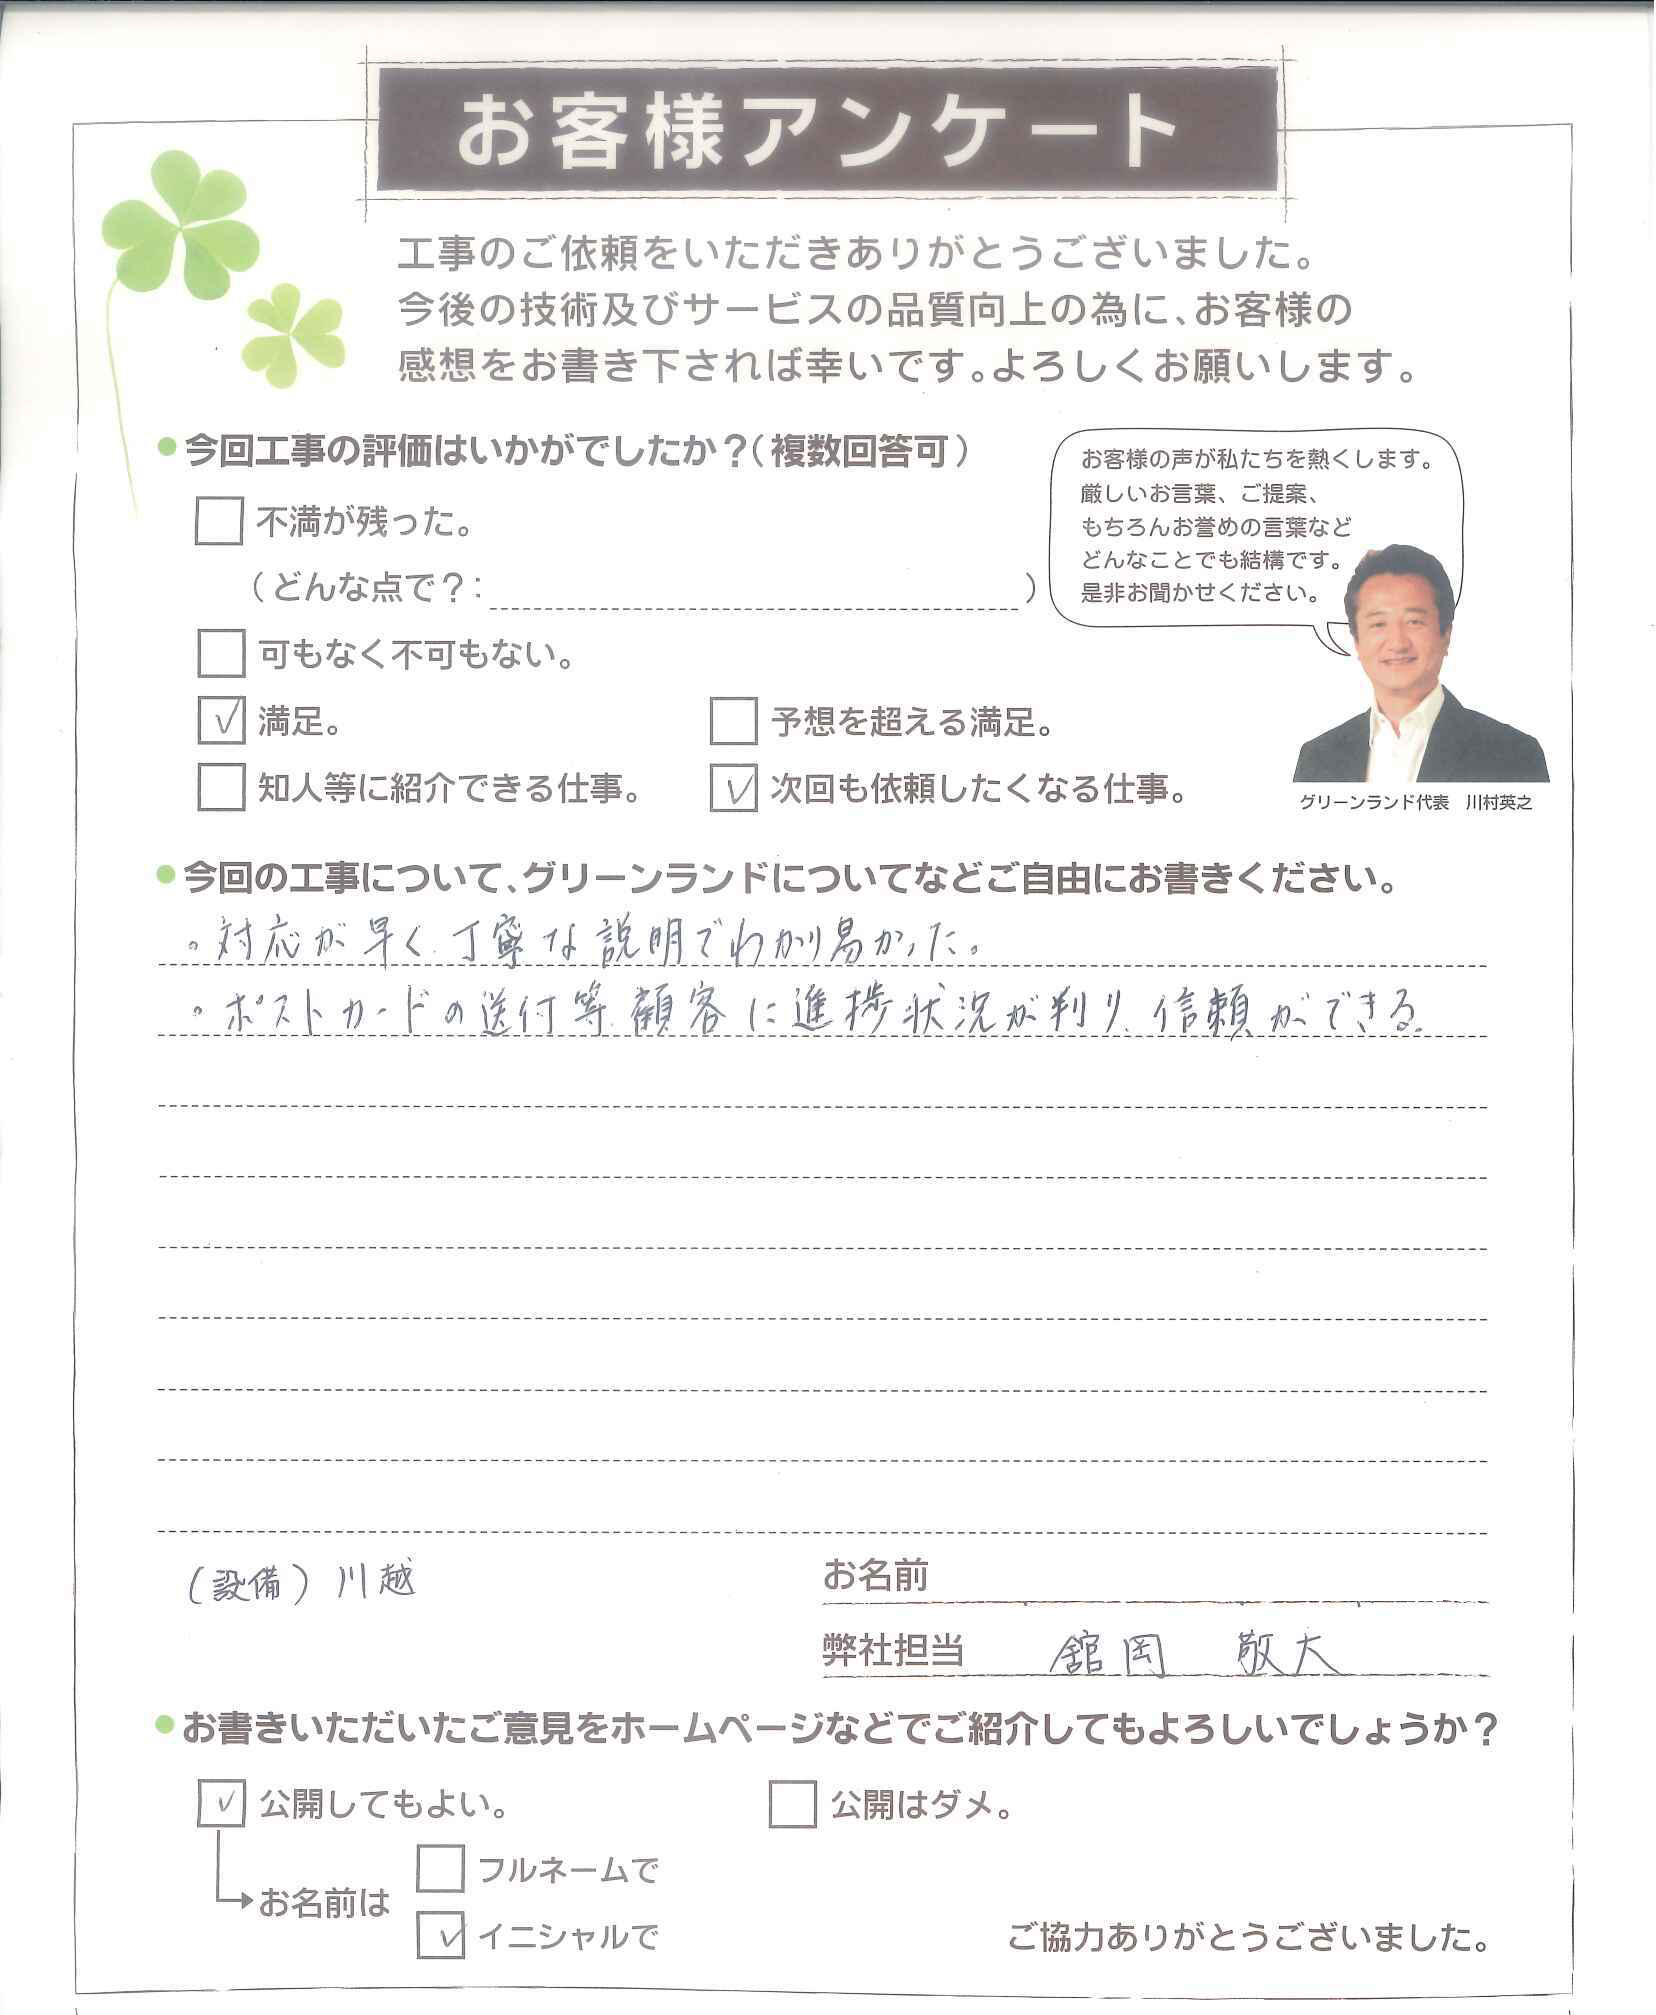 お客様アンケート
工事のご依頼をいただきありがとうございました。
今後の技術及びサービスの品質向上の為に、お客様の
感想をお書き下されれば幸いです。よろしくお願いします。
●今回工事の評価はいかがでしたか？（複数回答可）
不満が残った。
（どんな点で？：　）
可もなく不可もない。
満足。　予想を超える満足。
知人等に紹介できる仕事。　次回も依頼したくなる仕事。
お客様の声が私たちを熱くします。
厳しいお言葉、ご提案、
もちろんお誉めの言葉など
どんなことでも結構です。
是非お聞かせください。
グリーンランド代表　川村英之
●今回の工事について、グリーンランドについてなどご自由にお書きください。
。対応が早く、丁寧な説明でわかり易かった。
。ポストカードの送付等、顧客に進捗状況が判り、信頼ができる。
（設備）川越
お名前
弊社担当　舘岡　敬大
●お書きいただいたご意見をホームページなどでご紹介してもよろしいでしょうか？
公開してもよい。　公開はダメ。
お名前は
フルネームで
イニシャルで
ご協力ありがとうございました。